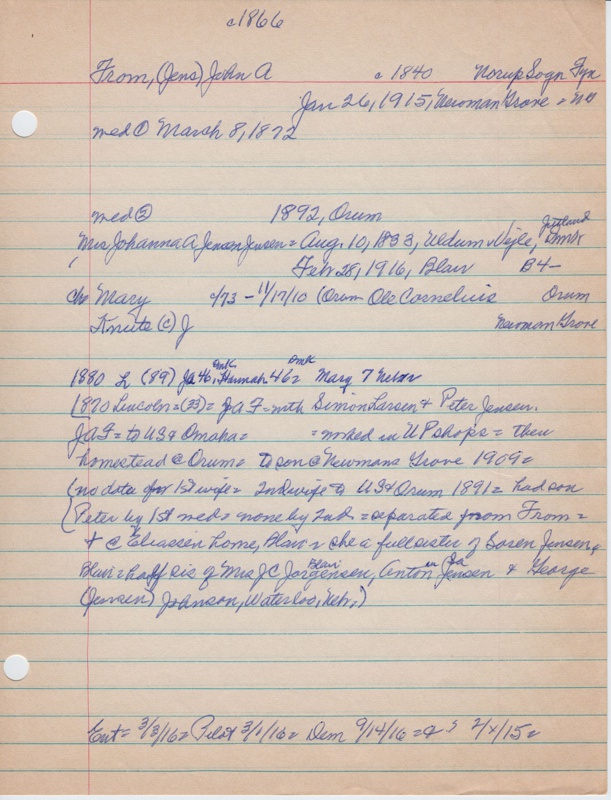 c1866
From, (Jens) John A c 1840 Norup Sogn Fyn
Jan 26, 1915, Newman Grove =
med ① March 8, 1872
med ② 1892, Orum
Jutland
Mrs Johanna A Jensen Jensen = Aug. 10, 1833, Uldum Vejle, Dmk
Feb 28, 1916, Blair B4-
chn Mary c/73 - 11/17/10 (Orum Ole Cornelius Orum
Knute (c) J Newman Grove
Dmk Dmk
1880 L (89) Ja 46, Hannah 46 = Mary 7 Nebr
1870 Lincoln = (23) = JAF = with Simon Larsen & Peter Jensen.
JAF = to US & Omaha = = worked in UP shops = then
homestead @ Orum = to son @ Newmans Grove 1909 =
(no data for 1st wife = 2nd wife to US & Orum 1891 = had son
(Peter by 1st med = none by 2nd = separated from From =
+ @ Eliassen home, Blair = she a full sister of Soren Jensen,
Blair = half sis of Mrs JC Jorgensen, Blair Anton Jensen & George
(Jensen) Johnson, Waterloo, Nebr,)
Ent = 3/8/16 = Pilot 3/1/16 = Dem 9/14/16 = 2/4/15 =